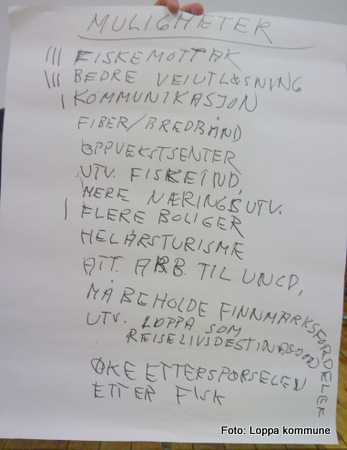 MULIGHETER
||| FISKEMOTTAK
||| BEDRE VEIUTLØSNING
| KOMMUNIKASJON
FIBER/BREDBÅND
OPPVEKSTSENTER
UTV. FISKEIND.
MERE NÆRINGSUTV.
| FLERE BOLIGER
HELÅRSTURISME
ATT. ARB. TIL UNGD,
MÅ BEHOLDE FINNMARKSFORDELER
UTV. LOPPA SOM
REISELIVSDESTINASJON
ØKE ETTERSPØRSELEN
ETTER FISK
Foto: Loppa kommune